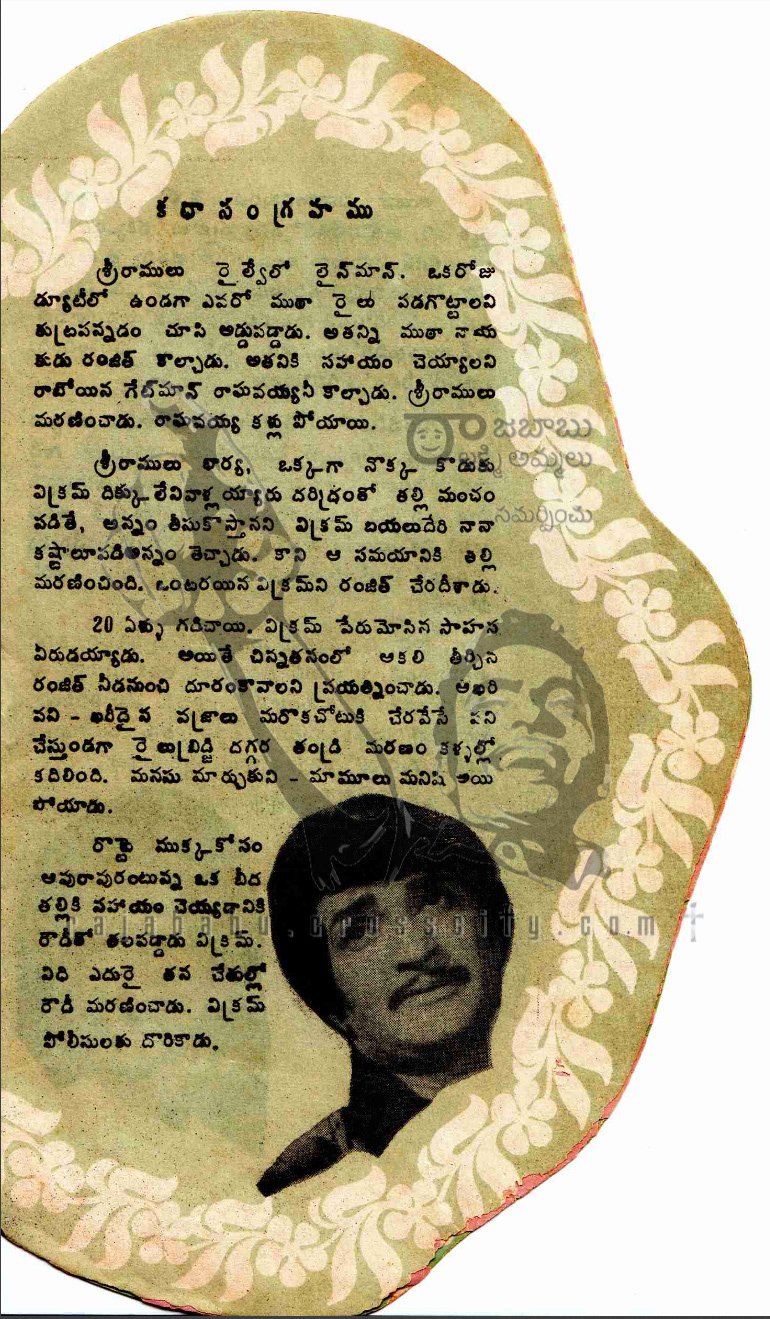 కథాసంగ్రహము
శ్రీరాములు రైల్వేలో లైన్‌మాన్. ఒకరోజు
డ్యూటీలో ఉండగా ఎవరో ముఠా రైలు పడగొట్టాలని
కుట్రపన్నడం చూసి అడ్డుపడ్డాడు. అతన్ని ముఠా నాయ
కుడు రంజిత్ కాల్చాడు. అతనికి సహాయం చెయ్యాలని
రాబోయిన గేట్‌మాన్ రాఘవయ్యనీ కాల్చాడు. శ్రీరాములు
మరణించాడు. రాఘవయ్య కళ్లు పోయాయి.
శ్రీరాములు భార్య, ఒక్కగా నొక్క కొడుకు
విక్రమ్ దిక్కులేనివాళ్లయ్యారు దరిద్రంతో తల్లి మంచం
పడితే, అన్నం తీసుకొస్తానని విక్రమ్ బయలుదేరి నానా
కష్టాలూపడిఅన్నం తెచ్చాడు. కాని ఆ సమయానికి తల్లి
మరణించింది. ఒంటరయిన విక్రమ్‌ని రంజిత్ చేరదీశాడు.
20 ఏళ్ళు గడిచాయి. విక్రమ్ పేరుమోసిన సాహస
వీరుడయ్యాడు. అయితే చిన్నతనంలో ఆకలి తీర్చిన
రంజిత్ నీడనుంచి దూరంకావాలని ప్రయత్నించాడు. ఆఖరి
పని - ఖరీదైన వజ్రాలు మరొకచోటుకి చేరవేసే పని
చేస్తుండగా రైలుబ్రిడ్జి దగ్గర తండ్రి మరణం కళ్ళల్లో
కదిలింది. మనసు మార్చుకుని - మామూలు మనిషి అయి
పోయాడు.
రొట్టె ముక్కకోసం
ఆవురావురంటున్న ఒక బీద
తల్లికి సహాయం చెయ్యడానికి
రౌడీతో తలపడ్డాడు విక్రమ్.
విధి ఎదురై తన చేతుల్లో
రౌడీ మరణించాడు. విక్రమ్
పోలీసులకు దొరికాడు.
రాజబాబు
లక్ష్మీ అమ్మలు
సమర్పించు
rajababu.crosscity.com